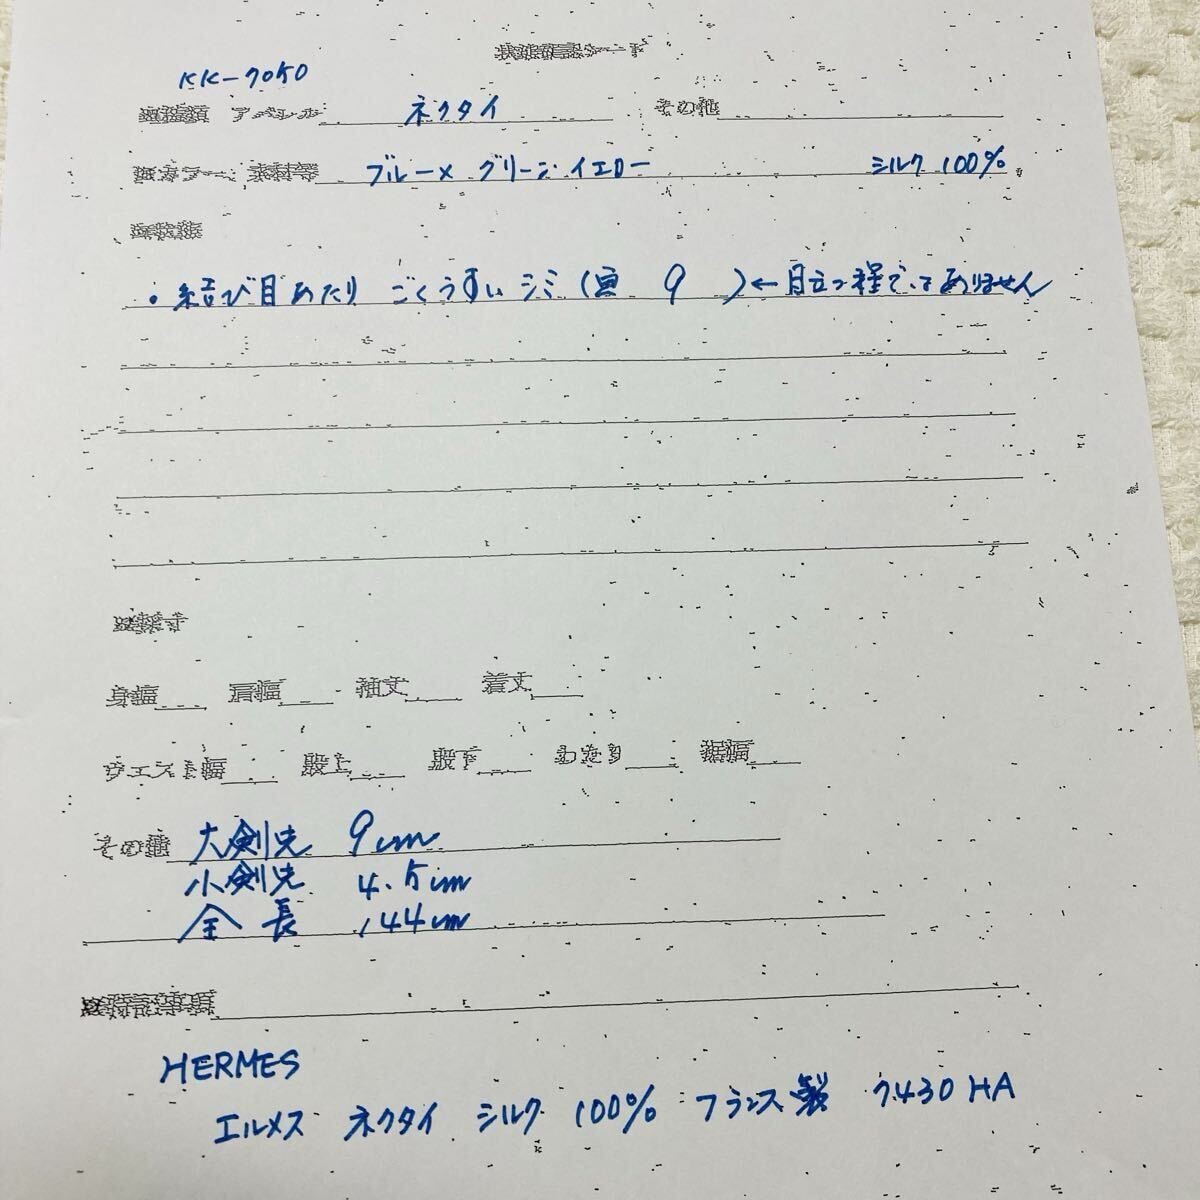 KK-7050
アパレル ネクタイ その他
ブルー×グリーン・イエロー シルク 100%
・結び目あたり ごくうすいシミ(画 9 )←目立つ程でってありません
身幅 肩幅 袖丈 着丈
ウエスト幅 股上 股下 わたり 裾幅
その他 大剣先 9cm
小剣先 4.5cm
全長 144cm
特記事項
HERMES
エルメス ネクタイ シルク 100% フランス製 7430 HA